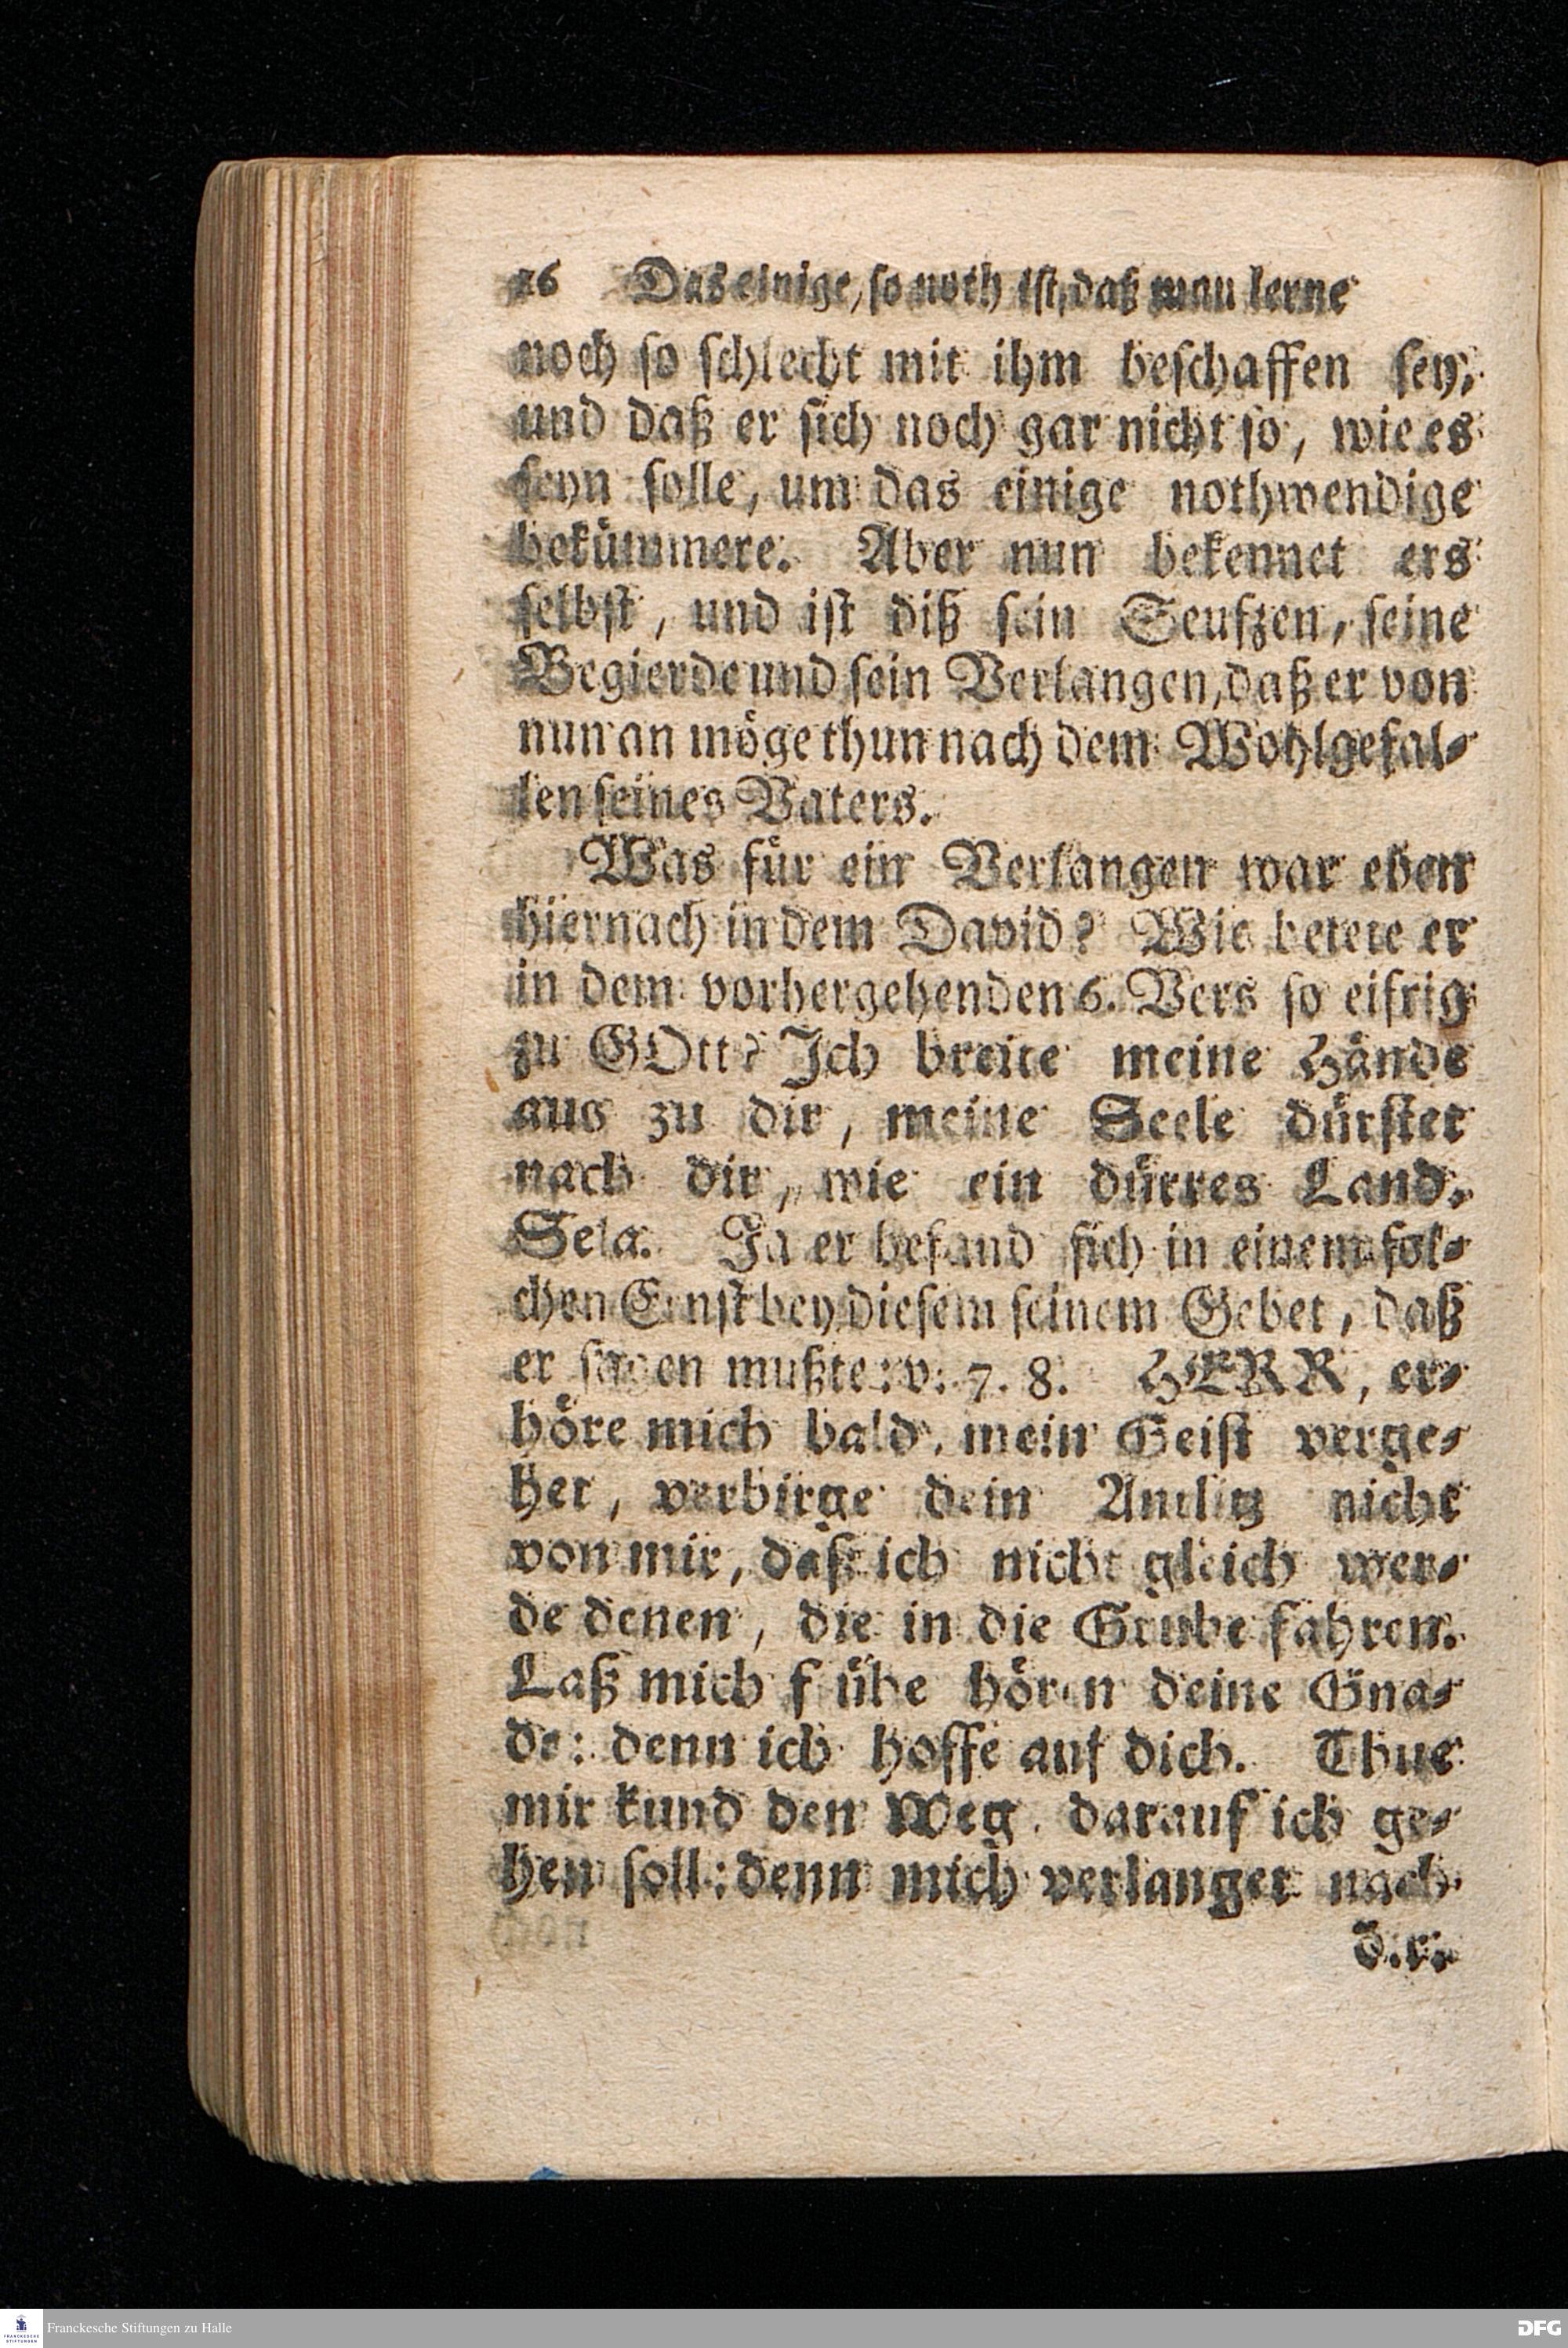 26 Das einige, so noth ist, daß man lerne
noch so schlecht mit ihm beschaffen sey,
und daß er sich noch gar nicht so, wie es
seyn solle, um das einige nothwendige
bekümmere. Aber nun bekennet ers
selbst, und ist diß sein Seufzen, seine
Begierde und sein Verlangen, daß er von
nun an möge thun nach dem Wohlgefal-
len seines Vaters.
Was für ein Verlangen war eben
hiernach in dem David? Wie betete er
in dem vorhergehenden 6. Vers so eifrig
zu GOtt? Ich breite meine Hände
aus zu dir, meine Seele dürstet
nach dir, wie ein dürres Land.
Sela. Ja er befand sich in einem sol-
chen Ernst bey diesem seinem Gebet, daß
er sagen mußte: v. 7. 8. HERR, er-
höre mich bald, mein Geist verge-
het, verbirge dein Antlitz nicht
von mir, daß ich nicht gleich wer-
de denen, die in die Grube fahren.
Laß mich frühe hören deine Gna-
de: denn ich hoffe auf dich. Thue
mir kund den Weg, darauf ich ge-
hen soll: denn mich verlanget nach
dir.
Franckesche Stiftungen zu Halle
DFG